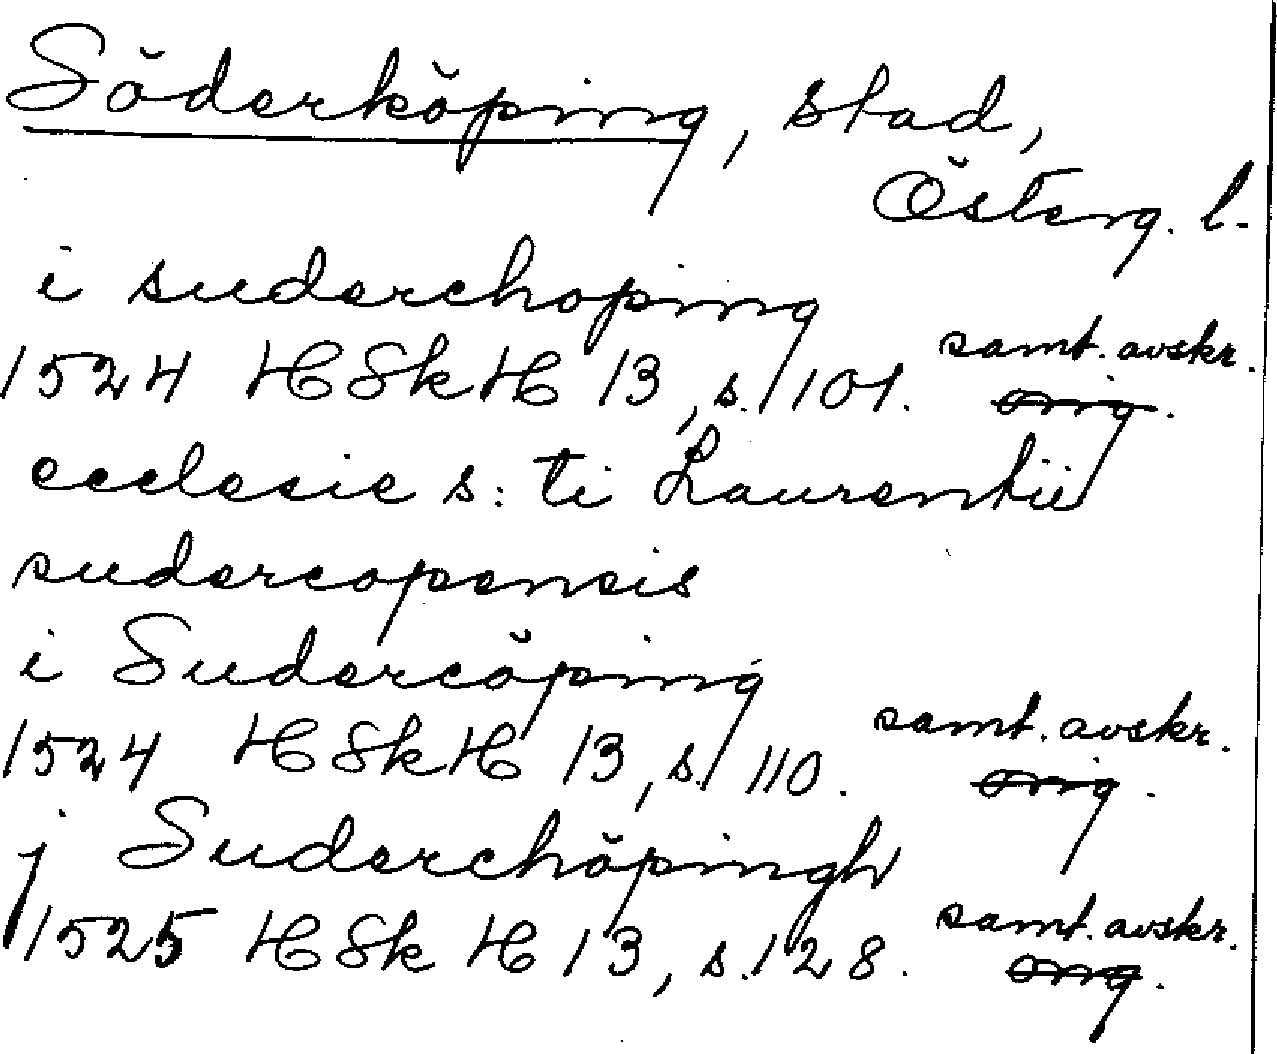 Söderköping, stad,
Österg. l.
i suderchoping
samt. avskr.
1524 HSkH 13, s. 101. orig.
ecclesie s:ti Laurentii
sudercopensis
i Sudercöping
samt. avskr.
1524 HSkH 13, s. 110. orig.
j Suderchöpingh
samt. avskr.
1525 HSkH 13, s. 128. orig.